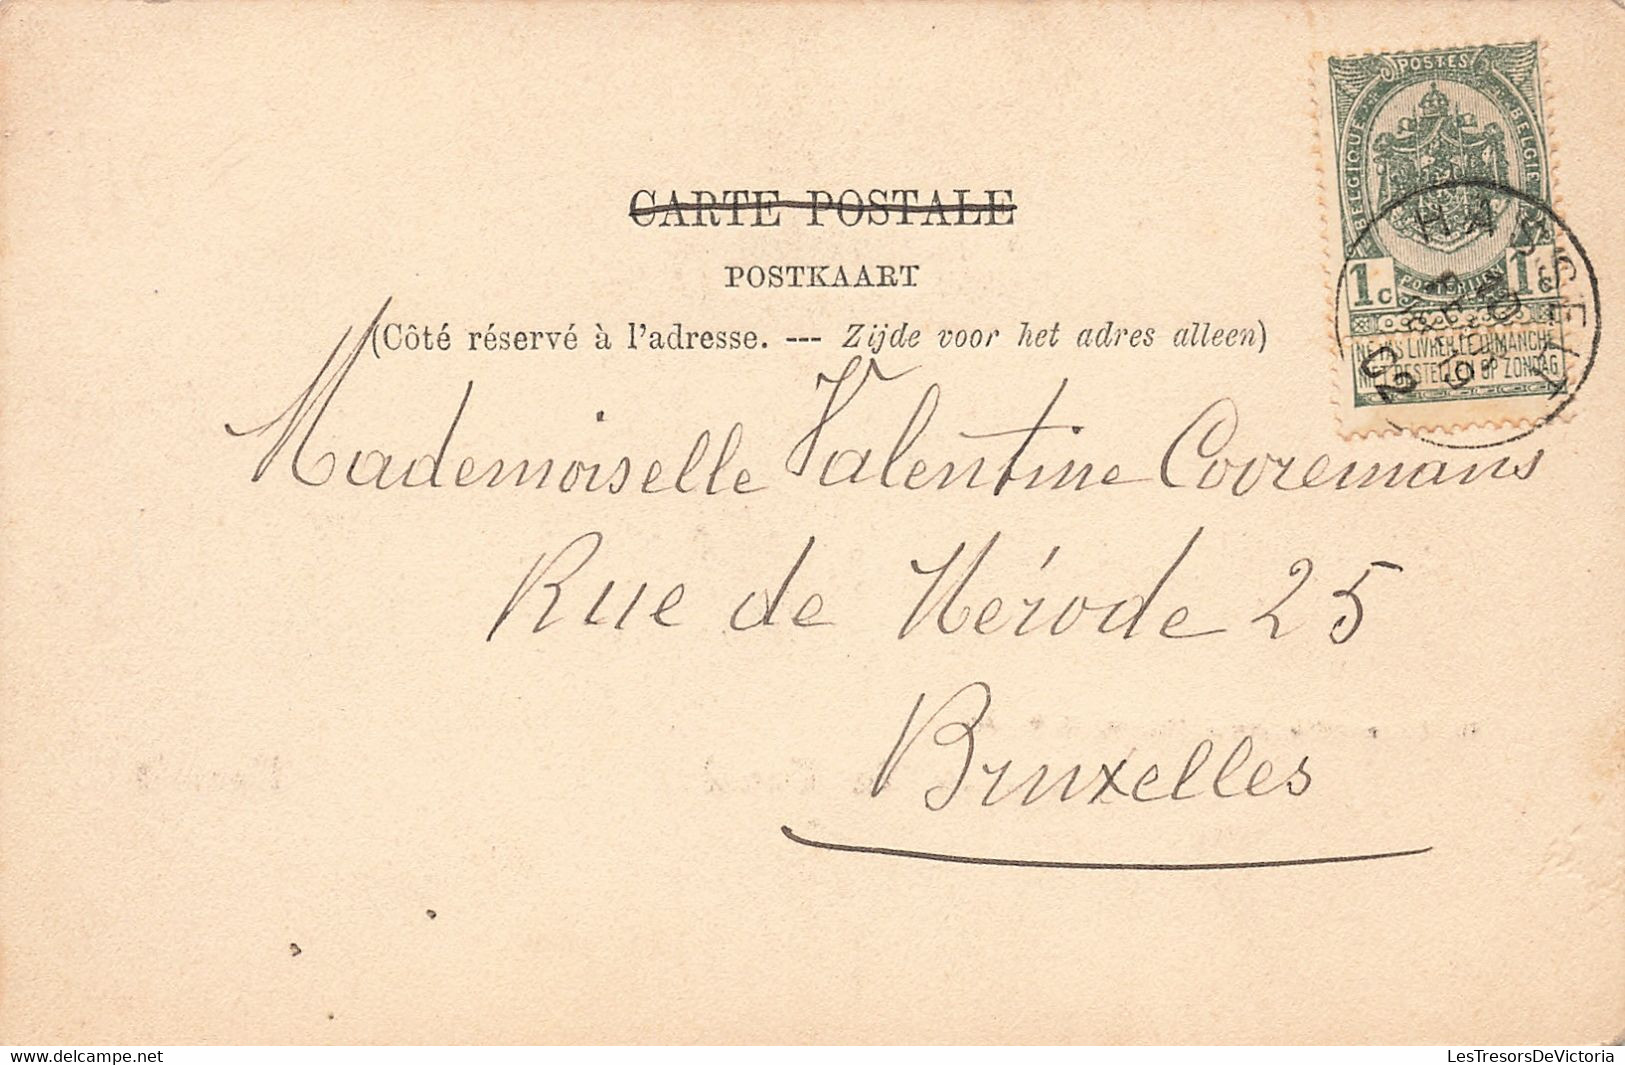 POSTES
BELGIQUE
BELGIE
CARTE POSTALE
POSTKAART
1c
1c
(Côté réservé à l'adresse. --- Zijde voor het adres alleen)
NE PAS LIVRER LE DIMANCHE
NIET BESTELLEN OP ZONDAG
02
Mademoiselle Valentine Cooremans
Rue de Mérode 25
Bruxelles
https://www.delcampe.net
LesTresorsDeVictoria